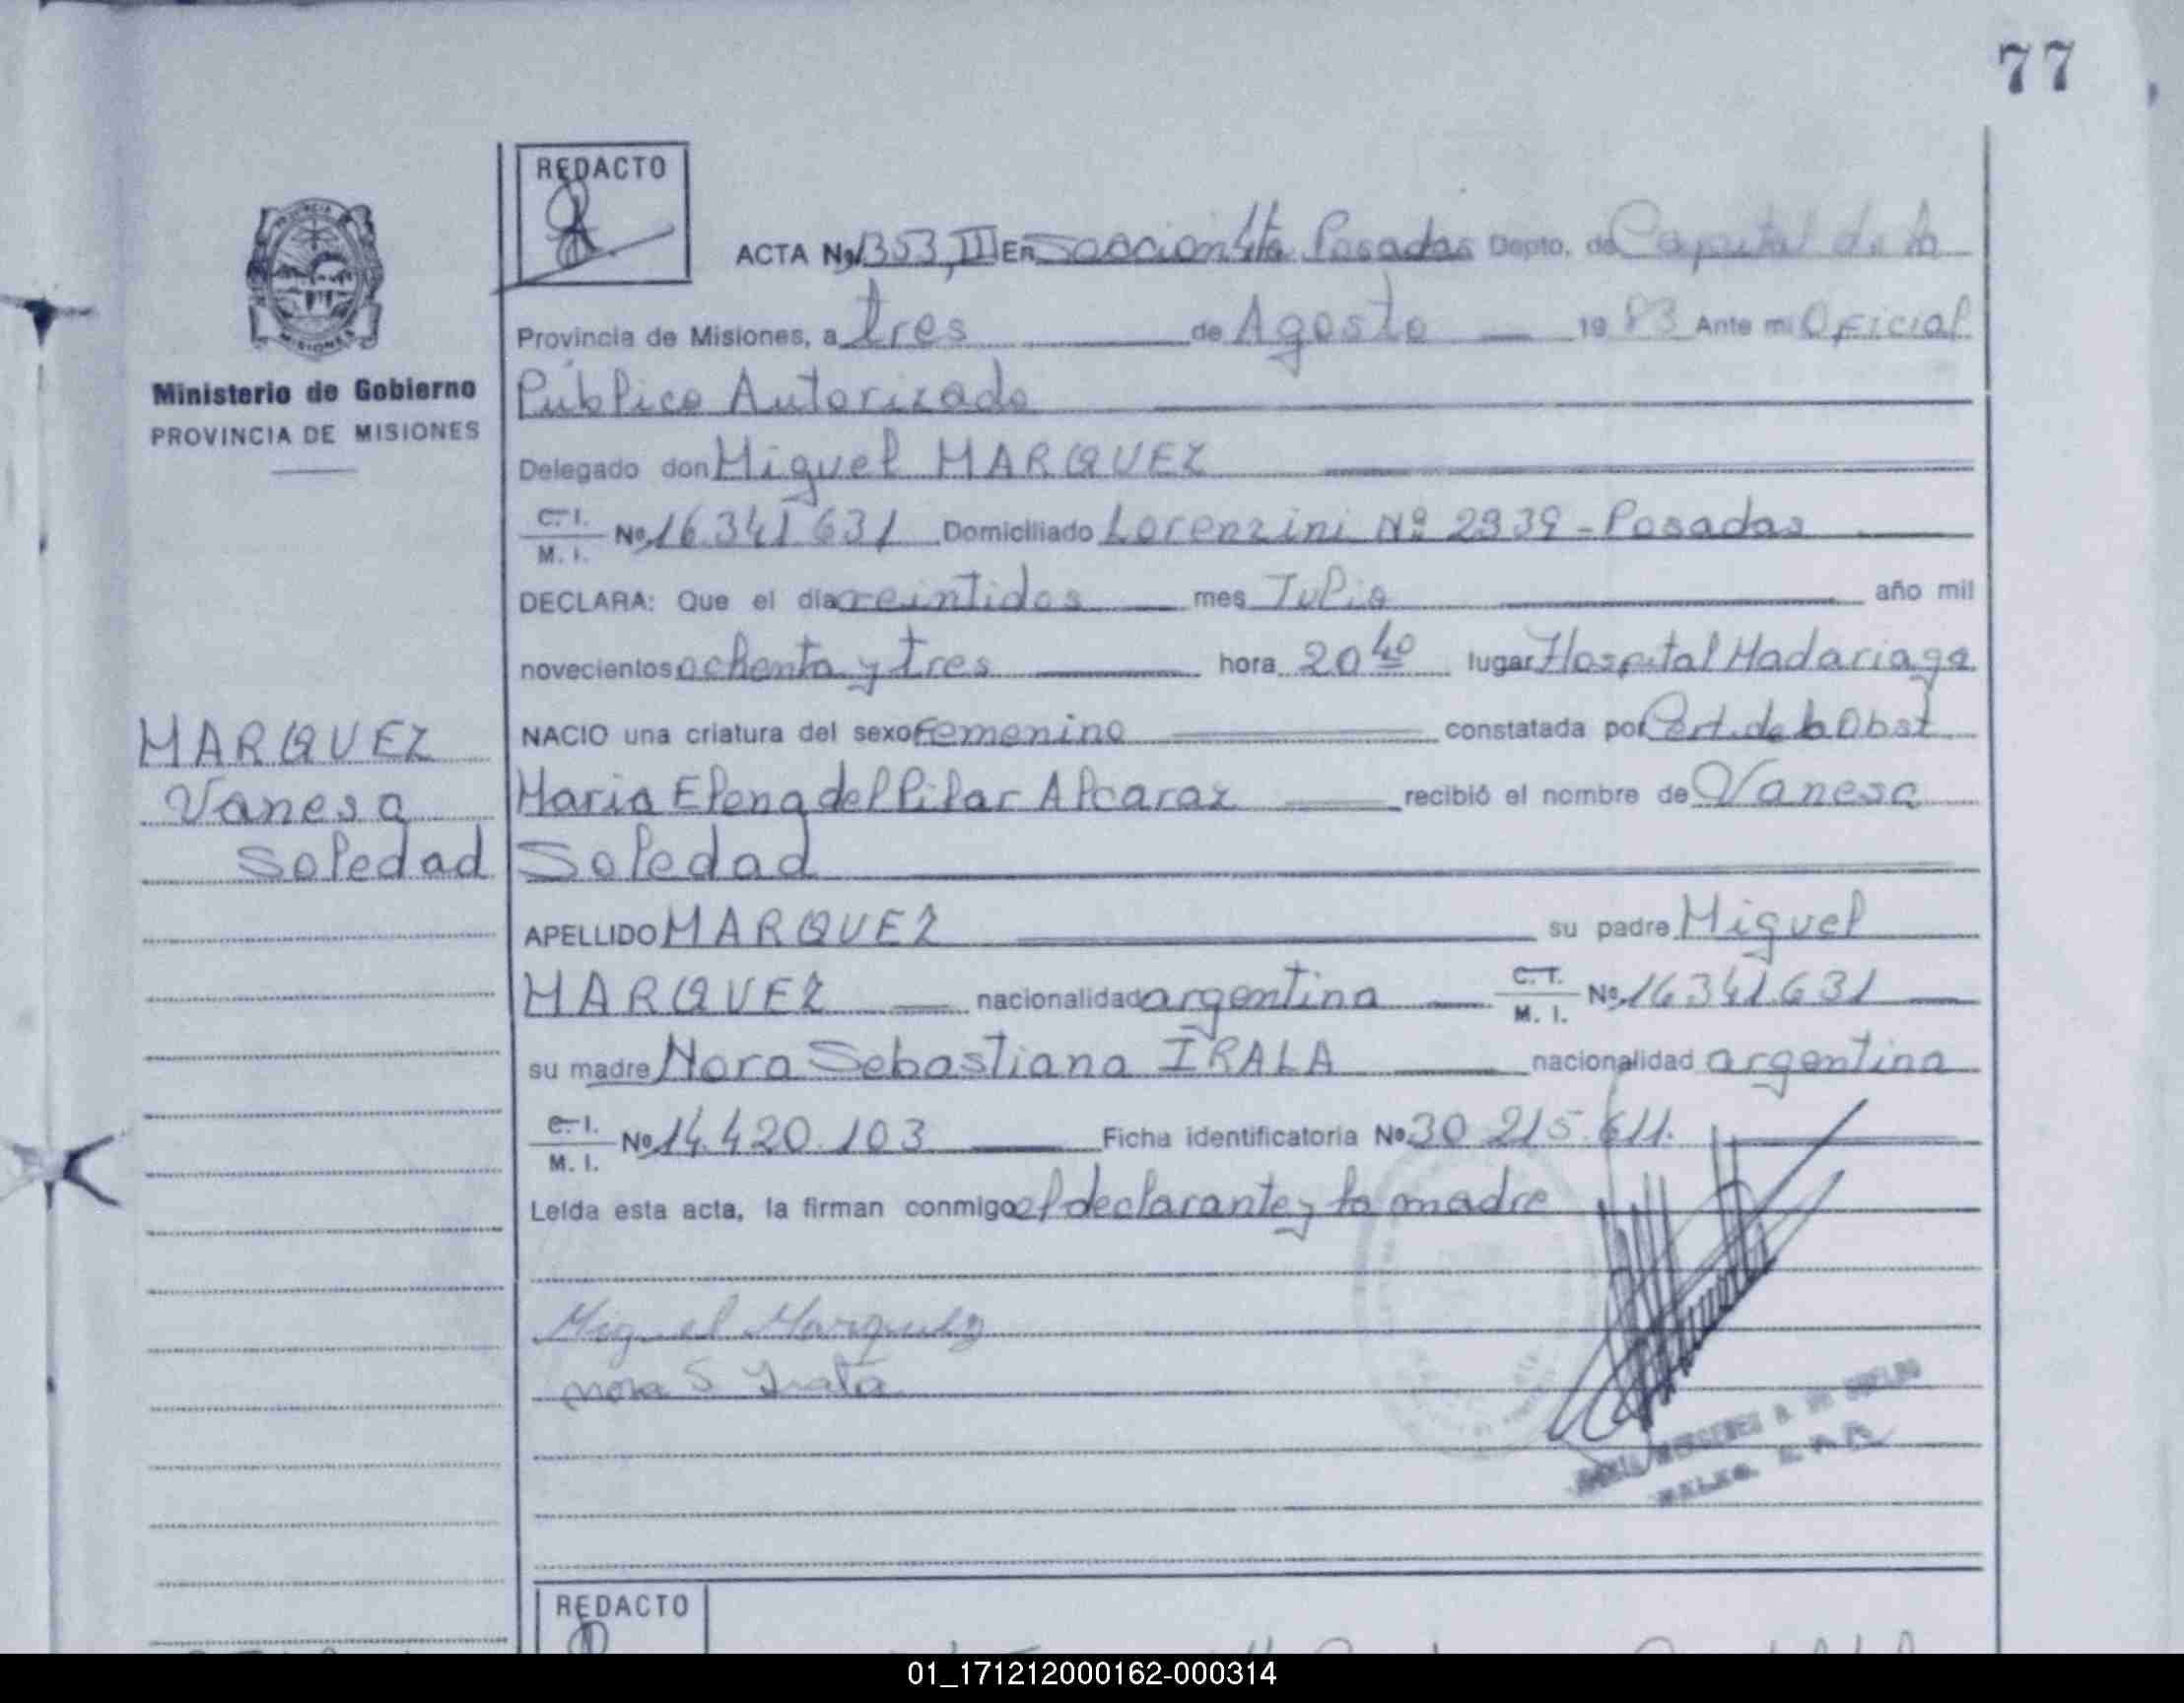 77
REDACTO
ACTA Nº 1353, III En Seccion 4ta Posadas Depto. de Capital de la
Provincia de Misiones, a tres de Agosto 1983 Ante mi Oficial
Público Autorizado
Ministerio de Gobierno
PROVINCIA DE MISIONES
Delegado don Miguel MARQUEZ
C. I.
M. I. Nº 16.341.631 Domiciliado Lorenzini Nº 2939 - Posadas
DECLARA: Que el día veintidos mes Julio año mil
novecientos ochenta y tres hora 20 40 lugar Hospital Madariaga
NACIO una criatura del sexo Femenino constatada por Cert. de la Obst
Maria Elena del Pilar Alcaraz recibió el nombre de Vanesa
Soledad
MARQUEZ
Vanesa
Soledad
APELLIDO MARQUEZ su padre Miguel
MARQUEZ nacionalidad argentina C. I.
M. I. Nº 16.341.631
su madre Nora Sebastiana IRALA nacionalidad argentina
C. I.
M. I. Nº 14.420.103 Ficha identificatoria Nº 30.215.611.
Leída esta acta, la firman conmigo el declarante y la madre
Miguel Marquez
Nora S Irala
REDACTO
01_171212000162-000314